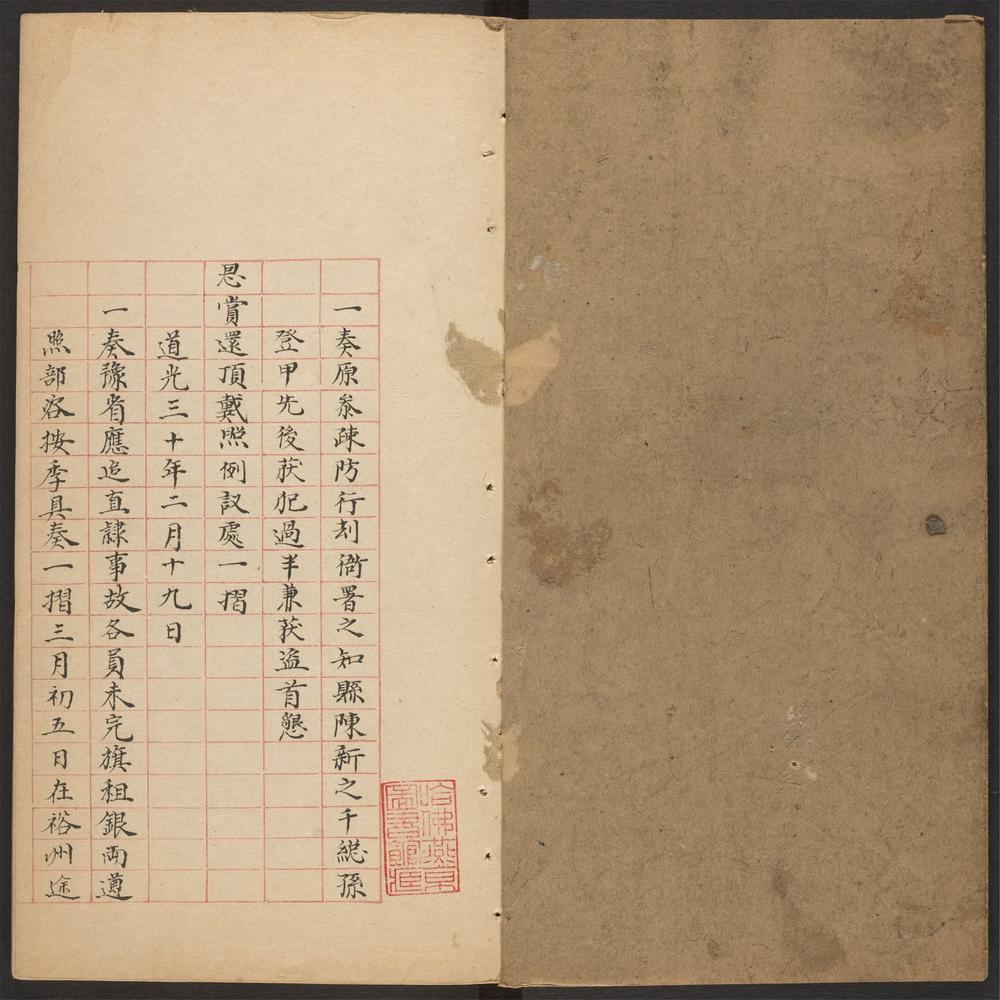 一奏原叅疎防行刦衙署之知縣陳新之千緫孫
登甲先後获犯過半兼获盗首懇
恩賞還頂戴照例議處一摺
道光三十年二月十九日
一奏豫省應追直隷事故各員未完旗租銀両遵
照部咨按季具奏一摺三月初五日在裕州途
哈佛燕京
圖書館藏